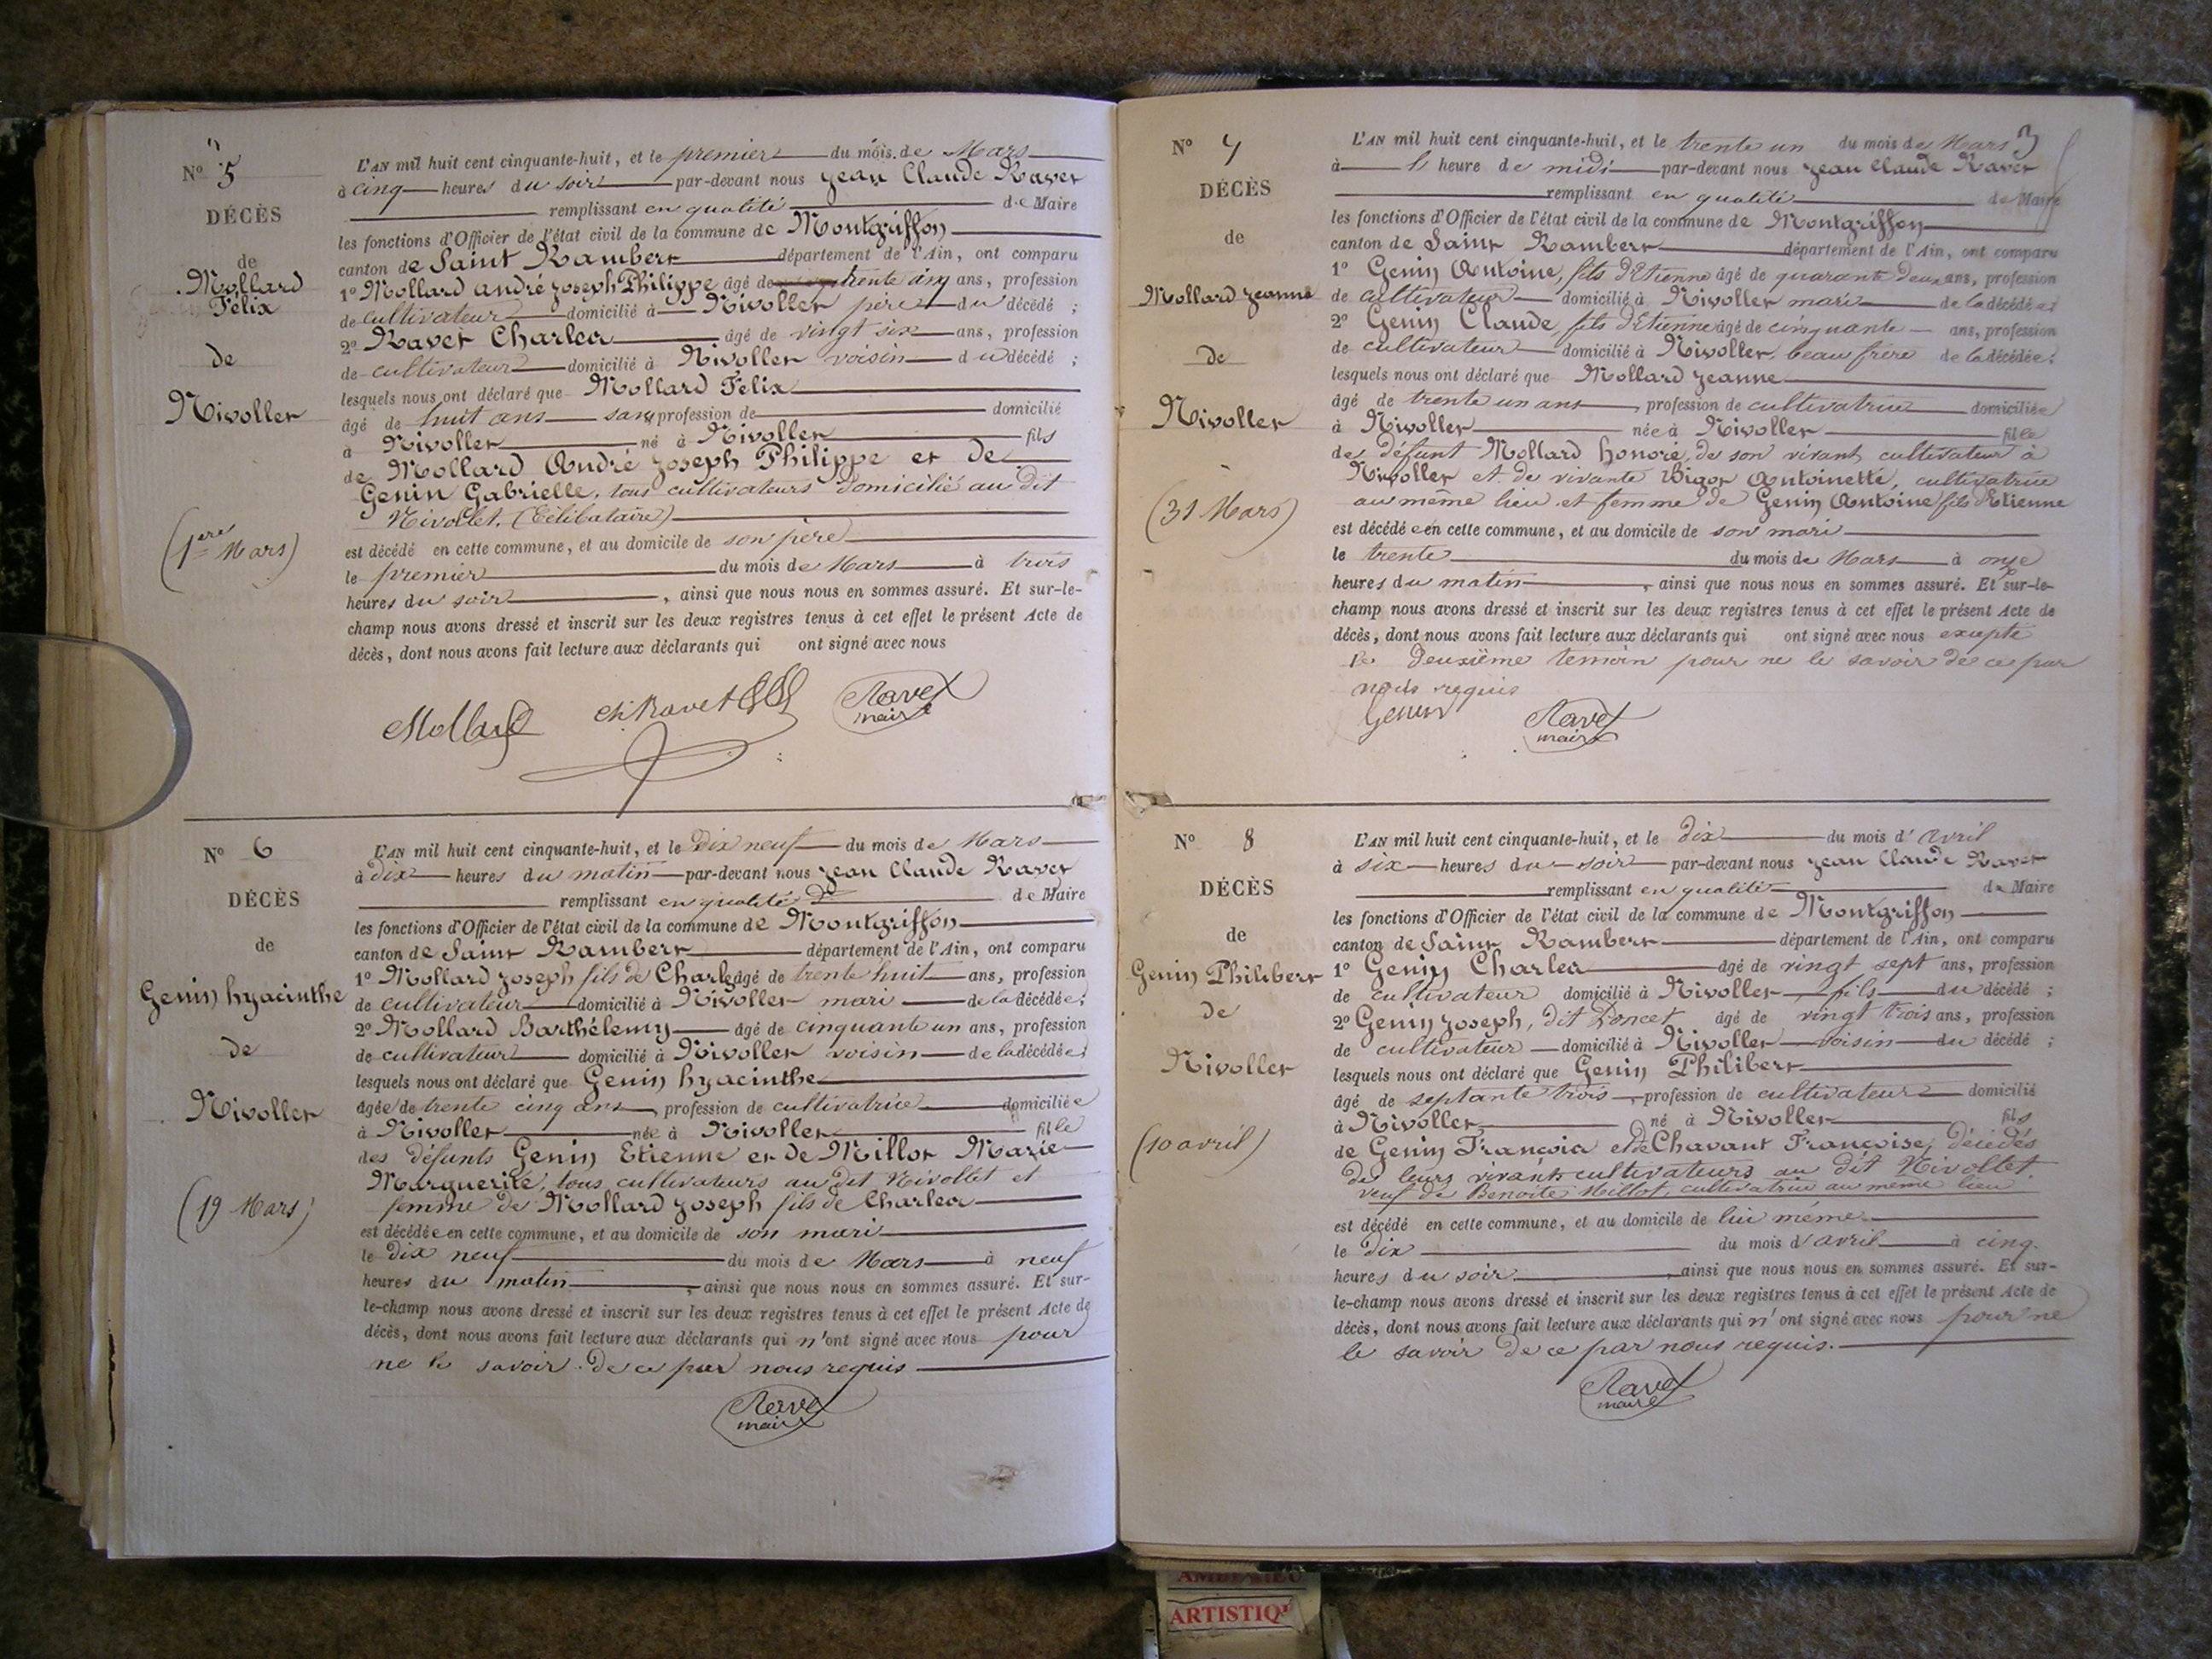 N° 5
DÉCÈS
de
Mollard
Félix
de
Nivollet
(1ere Mars)
L'AN mil huit cent cinquante-huit, et le premier du mois de Mars
à cinq heures du soir par-devant nous Jean Claude Ravet
remplissant en qualité de Maire
les fonctions d'Officier de l'état civil de la commune de Montgriffon
canton de Saint Rambert département de l'Ain, ont comparu
1° Mollard André Joseph Philippe âgé de trente cinq ans, profession
de cultivateur domicilié à Nivollet père du décédé ;
2° Ravet Charles âgé de vingt six ans, profession
de cultivateur domicilié à Nivollet voisin du décédé ;
lesquels nous ont déclaré que Mollard Felix
âgé de huit ans sans profession de domicilié
à Nivollet né à Nivollet fils
de Mollard André Joseph Philippe et de
Genin Gabrielle, tous cultivateurs domicilié au dit
Nivollet, (Célibataire)
est décédé en cette commune, et au domicile de son père
le premier du mois de Mars à trois
heures du soir, ainsi que nous nous en sommes assuré. Et sur-le-
champ nous avons dressé et inscrit sur les deux registres tenus à cet effet le présent Acte de
décès, dont nous avons fait lecture aux déclarants qui ont signé avec nous
Mollard ch. Ravet Ravet
maire
N° 6
DÉCÈS
de
Genin hyacinthe
de
Nivollet
(19 Mars)
L'AN mil huit cent cinquante-huit, et le Dix neuf du mois de Mars
à dix heures du matin par-devant nous Jean Claude Ravet
remplissant en qualité de Maire
les fonctions d'Officier de l'état civil de la commune de Montgriffon
canton de Saint Rambert département de l'Ain, ont comparu
1° Mollard Joseph fils de Charles âgé de trente huit ans, profession
de cultivateur domicilié à Nivollet mari de la décédée ;
2° Mollard Barthélemy âgé de cinquante un ans, profession
de cultivateur domicilié à Nivollet voisin de la décédée ;
lesquels nous ont déclaré que Genin hyacinthe
âgée de trente cinq ans, profession de cultivatrice domiciliée
à Nivollet née à Nivollet fille
des défunts Genin Etienne et de Millot Marie
Marguerite, tous cultivateurs au dit Nivollet et
femme de Mollard Joseph fils de Charles
est décédée en cette commune, et au domicile de son mari
le dix neuf du mois de Mars à neuf
heures du matin, ainsi que nous nous en sommes assuré. Et sur-
le-champ nous avons dressé et inscrit sur les deux registres tenus à cet effet le présent Acte de
décès, dont nous avons fait lecture aux déclarants qui n'ont signé avec nous pour
ne le savoir de ce par nous requis
Ravet
maire
3
N° 7
DÉCÈS
de
Mollard Jeanne
de
Nivollet
(31 Mars)
L'AN mil huit cent cinquante-huit, et le trente un du mois de Mars
à l heure de midi par-devant nous Jean Claude Ravet
remplissant en qualité de Maire
les fonctions d'Officier de l'état civil de la commune de Montgriffon
canton de Saint Rambert département de l'Ain, ont comparu
1° Genin Antoine, fils d'Etienne âgé de quarante deux ans, profession
de cultivateur domicilié à Nivollet mari de la décédée ;
2° Genin Claude, fils d'Etienne âgé de cinquante ans, profession
de cultivateur domicilié à Nivollet, beau frère de la décédée ;
lesquels nous ont déclaré que Mollard Jeanne
âgé de trente un ans, profession de cultivatrice domiciliée
à Nivollet née à Nivollet fille
de défunt Mollard honoré, de son vivant cultivateur à
Nivollet et de vivante Antoinette, cultivatrice
au même lieu et femme de Genin Antoine fils d'Etienne
est décédée en cette commune, et au domicile de son mari
le trente du mois de Mars à onze
heures du matin, ainsi que nous nous en sommes assuré. Et sur-le-
champ nous avons dressé et inscrit sur les deux registres tenus à cet effet le présent Acte de
décès, dont nous avons fait lecture aux déclarants qui ont signé avec nous excepté
le deuxième temoin pour ne le savoir de ce par
nous requis
Genin Ravet
maire
N° 8
DÉCÈS
de
Genin Philibert
de
Nivollet
(10 avril)
L'AN mil huit cent cinquante-huit, et le dix du mois d'avril
à six heures du soir par-devant nous Jean Claude Ravet
remplissant en qualité de Maire
les fonctions d'Officier de l'état civil de la commune de Montgriffon
canton de Saint Rambert département de l'Ain, ont comparu
1° Genin Charles âgé de vingt sept ans, profession
de cultivateur domicilié à Nivollet, fils du décédé ;
2° Genin Joseph, dit Poncet âgé de vingt trois ans, profession
de cultivateur domicilié à Nivollet voisin du décédé ;
lesquels nous ont déclaré que Genin Philibert
âgé de septante trois, profession de cultivateur domicilié
à Nivollet, né à Nivollet fils
de Genin François et de Chavant Françoise, décédés
de leurs vivants cultivateurs au dit Nivollet
veuf de Benoite Millot, cultivatrice au même lieu
est décédé en cette commune, et au domicile de lui même
le dix du mois d'avril à cinq
heures du soir, ainsi que nous nous en sommes assuré. Et sur-
le-champ nous avons dressé et inscrit sur les deux registres tenus à cet effet le présent Acte de
décès, dont nous avons fait lecture aux déclarants qui n'ont signé avec nous pour ne
le savoir de ce par nous requis.
Ravet
maire
ARTISTIQ